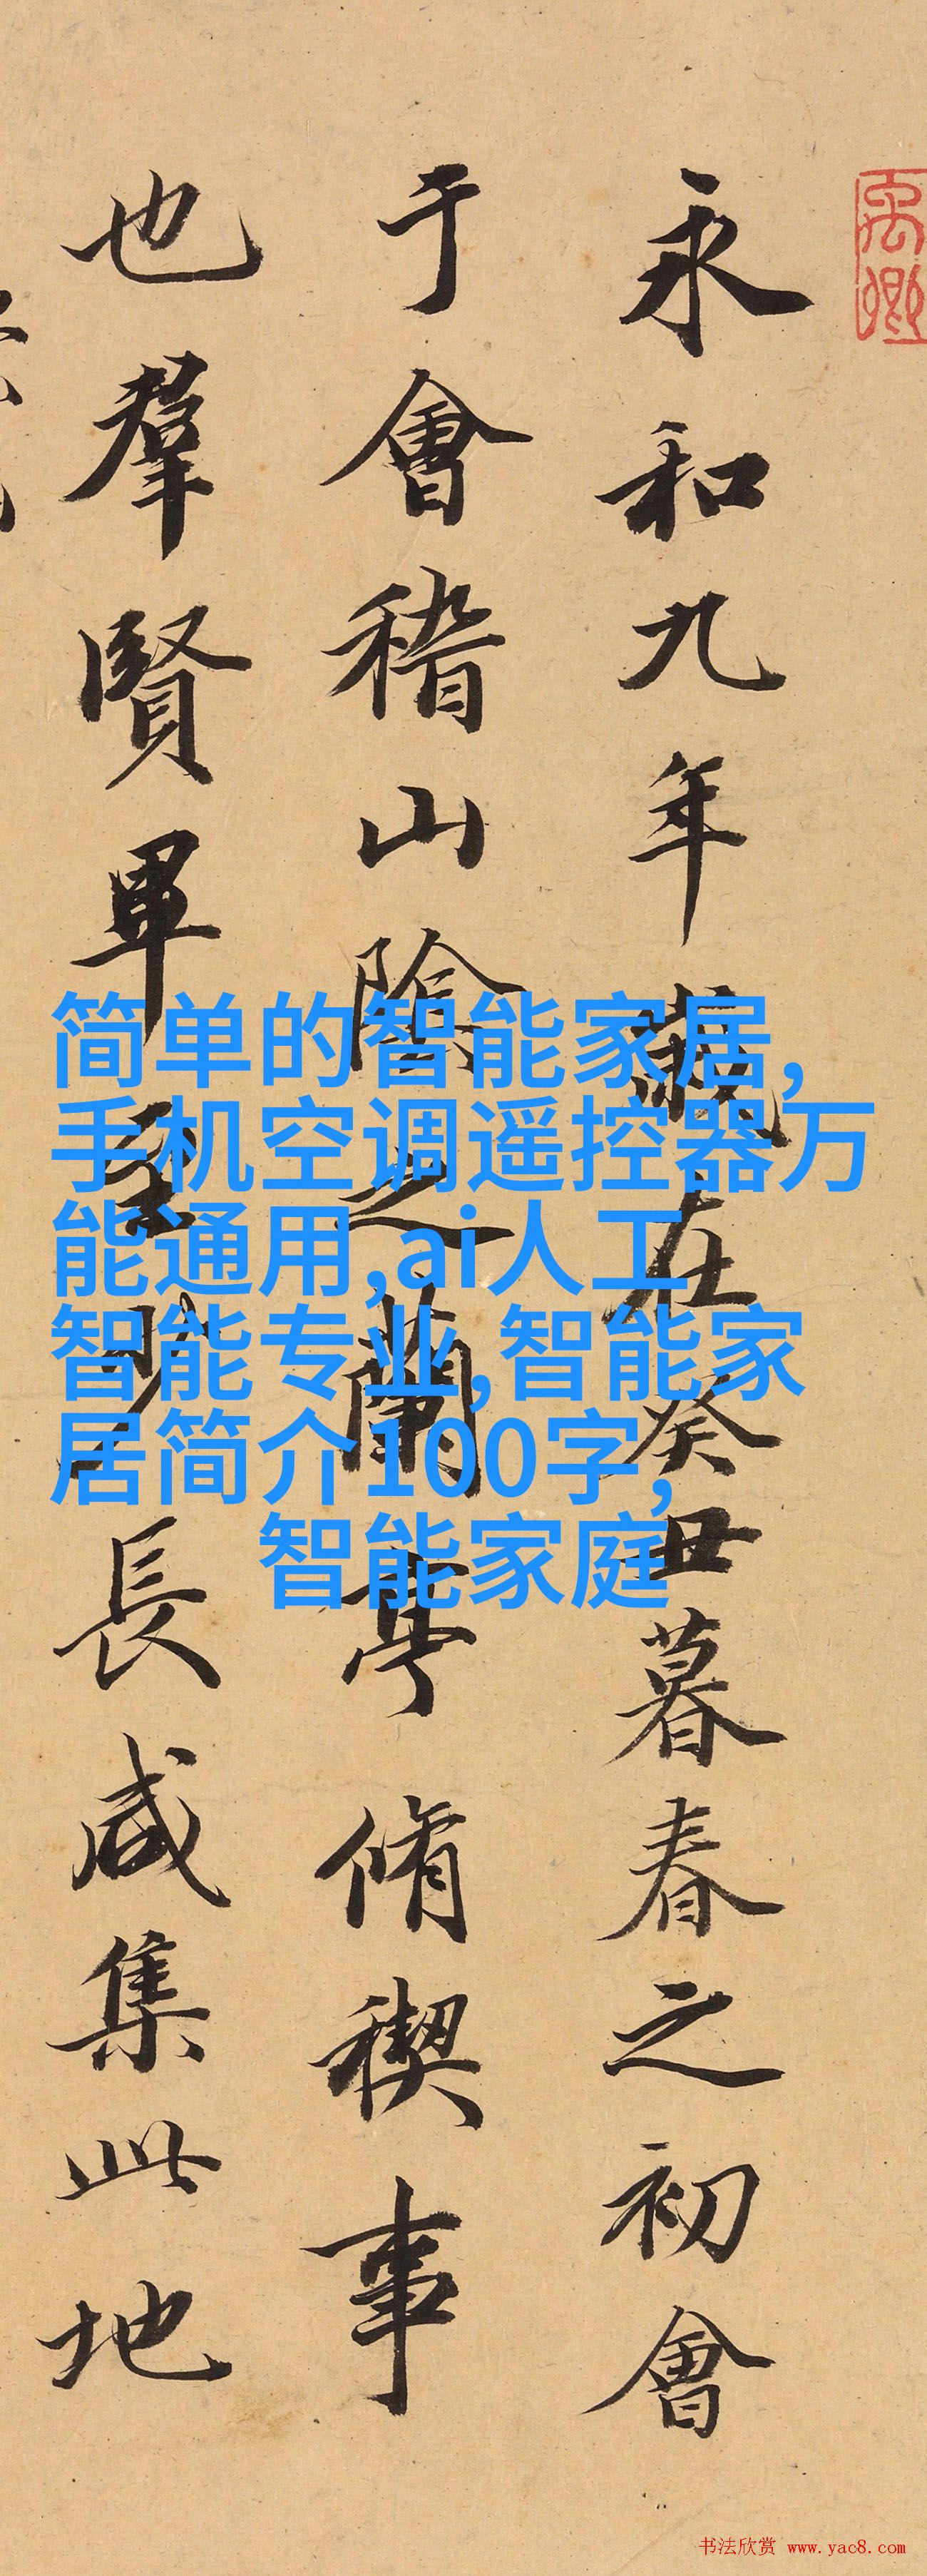 禹卿
永和九年歲在癸丑暮春之初會
于會稽山陰之蘭亭脩稧事
也羣賢畢至少長咸集此地
简单的智能家居,
手机空调遥控器万
能通用,ai人工
智能专业,智能家
居简介100字,
智能家庭
书法欣赏 www.yac8.com